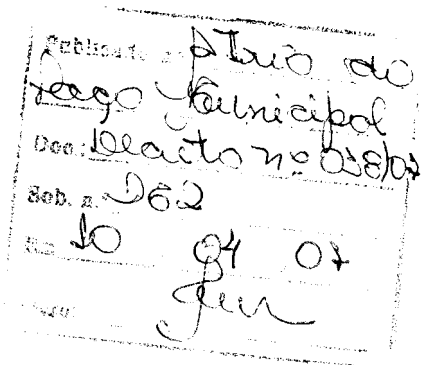 Publicado a: Átrio do
Paço Municipal
Doc.: Decreto nº 038/07
Sob. n.: 262
Em 10 04 07